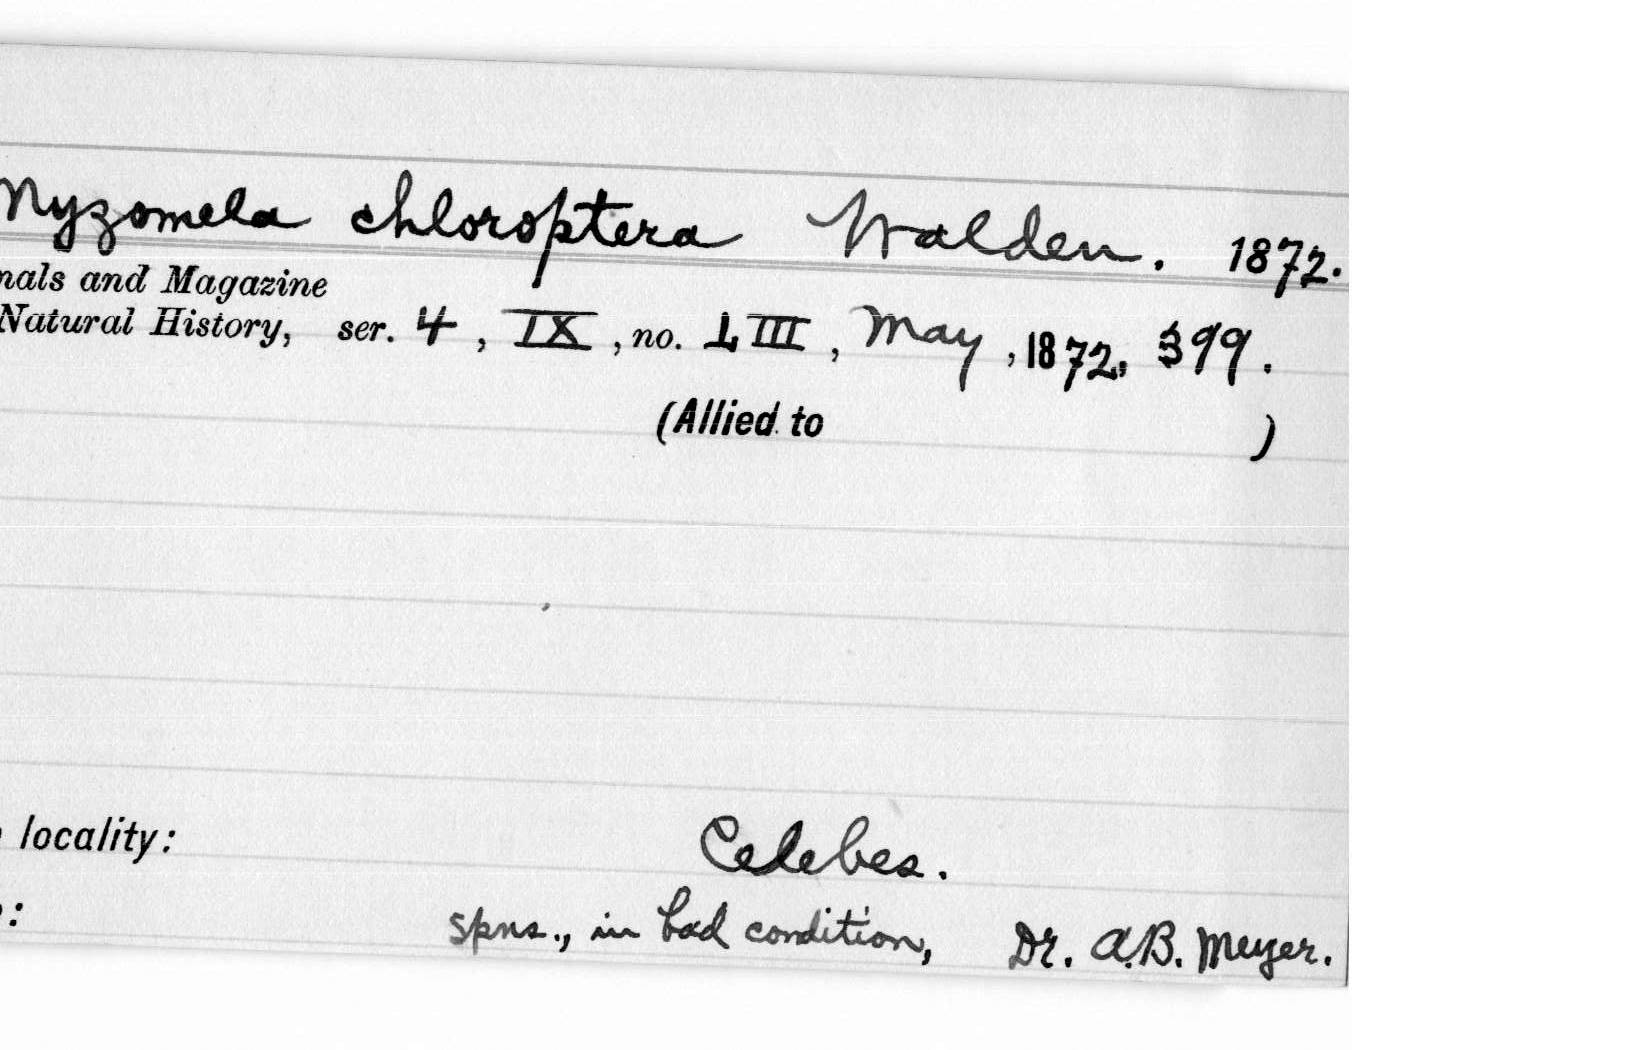 Myzomela chloroptera Walden. 1872.
nals and Magazine
Natural History, ser. 4, IX, no. LIII, May, 1872, 399.
(Allied to )
locality: Celebes.
: spns., in bad condition, Dr. A.B. Meyer.